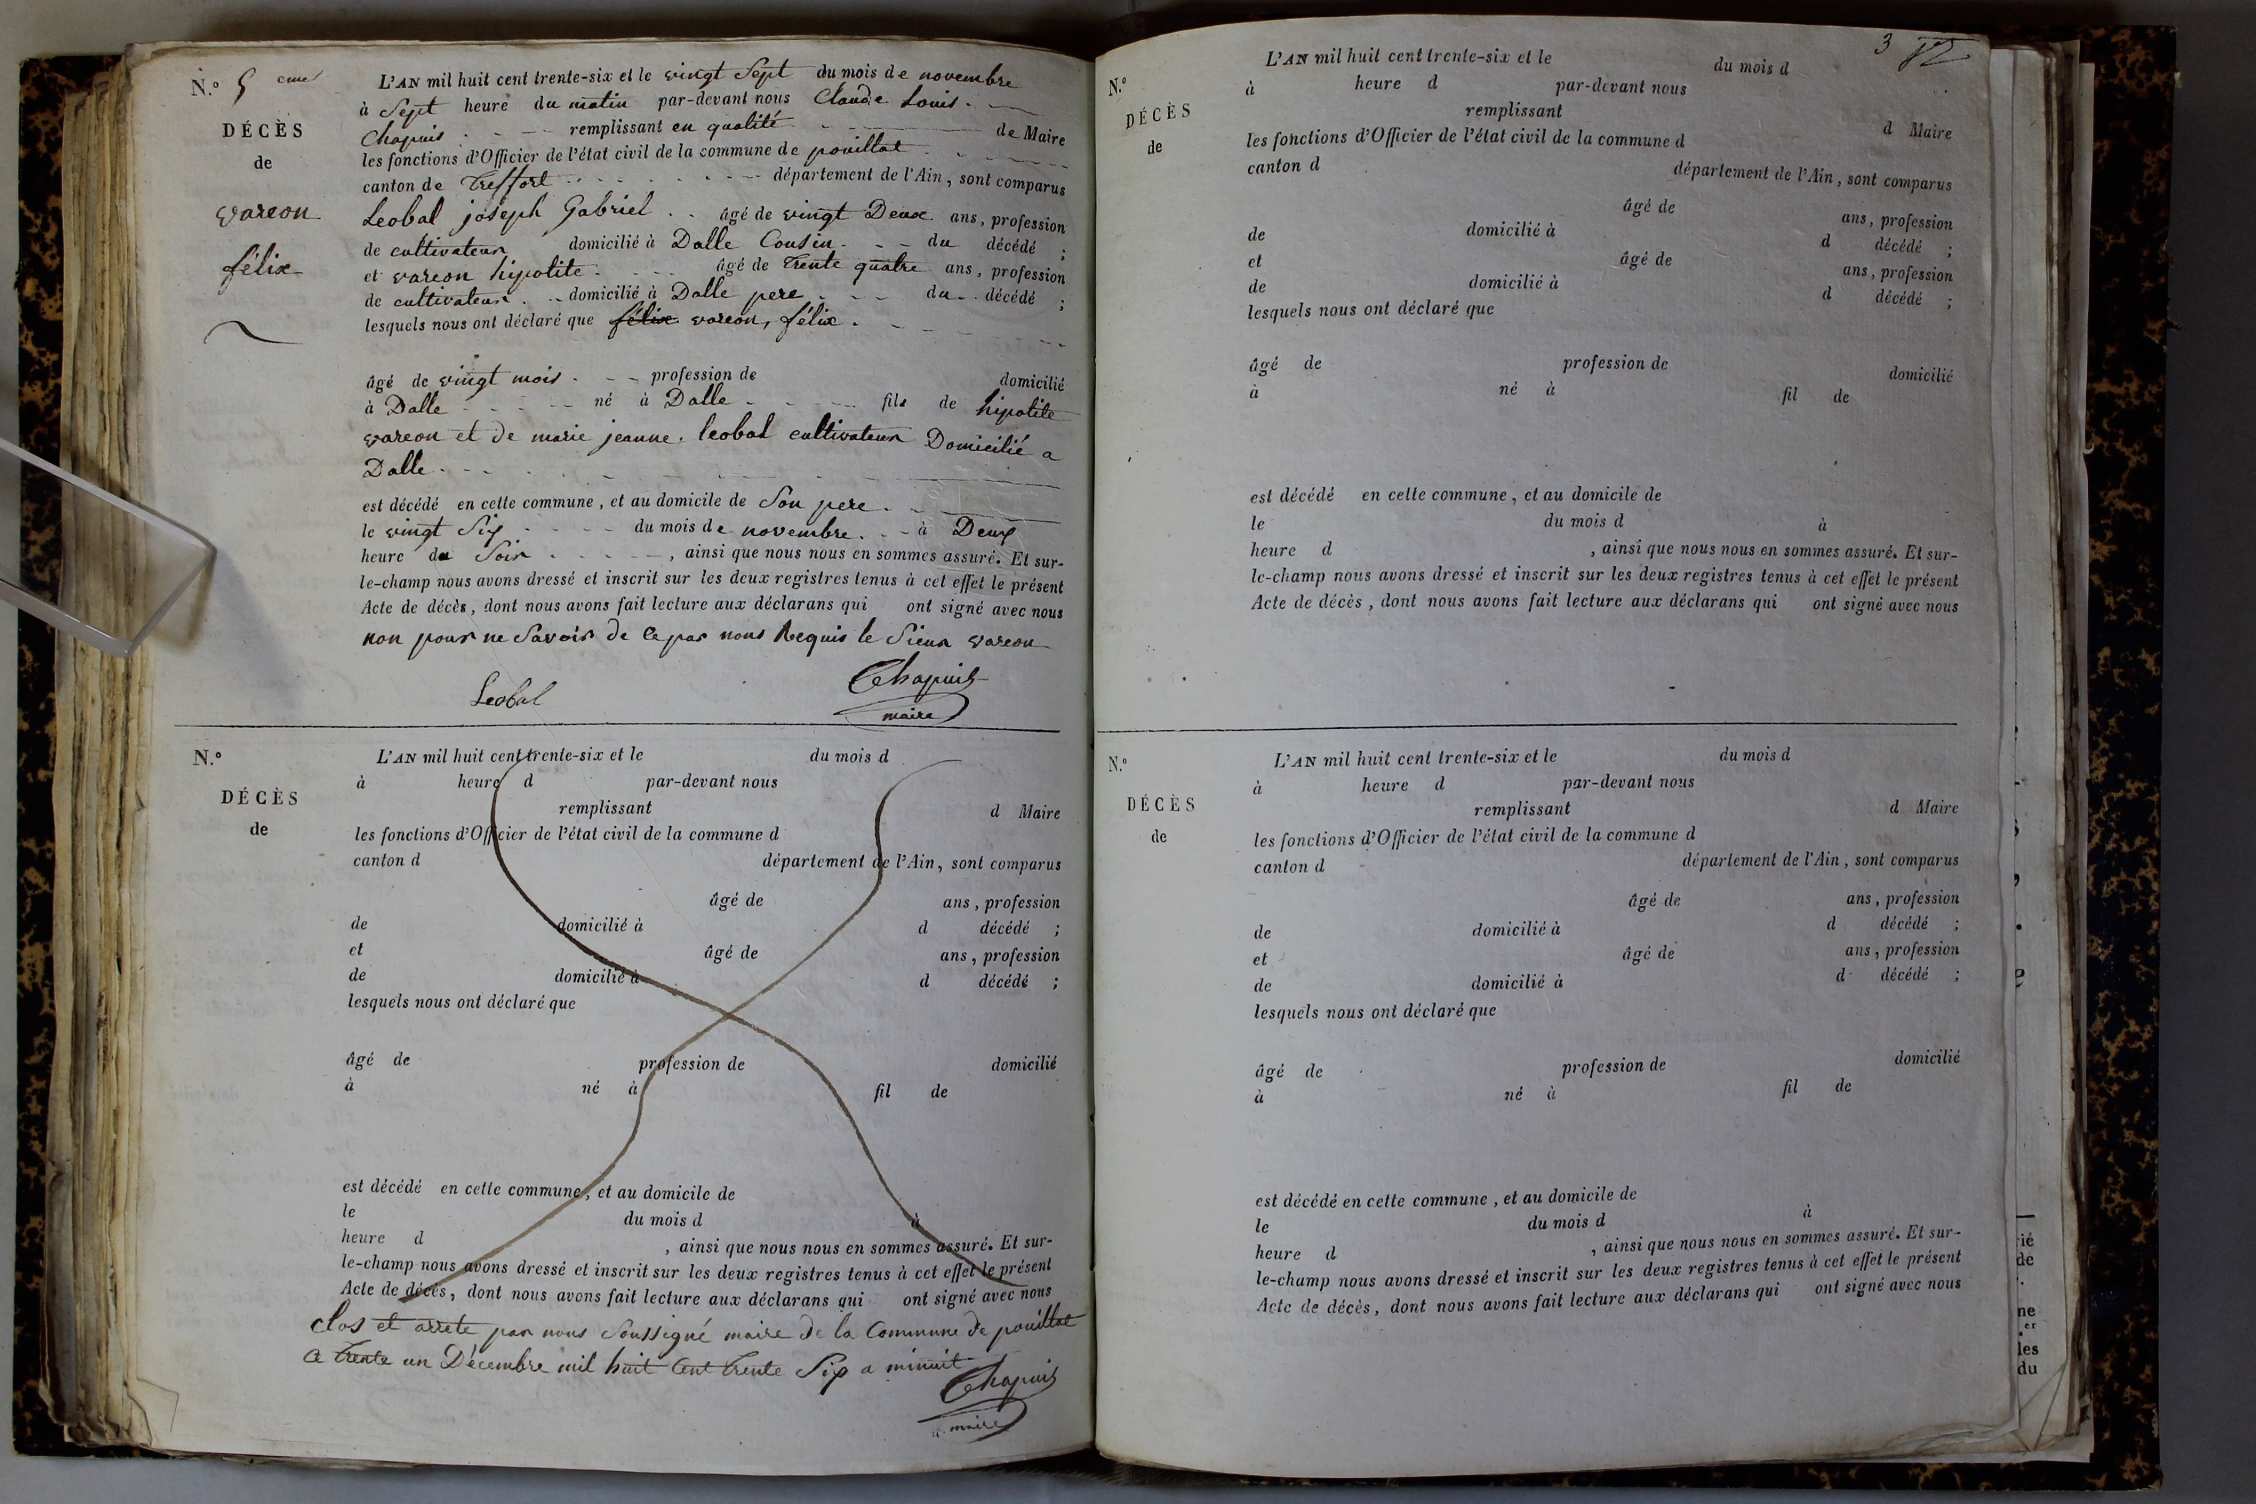 N.° 5 eme
DÉCÈS
de
vareon
félix
L'AN mil huit cent trente-six et le vingt Sept du mois de novembre
à Sept heure du matin par-devant nous Claude Louis
Chapuis remplissant en qualité de Maire
les fonctions d'Officier de l'état civil de la commune de pouillat
canton de Treffort département de l'Ain, sont comparus
Leobal joseph Gabriel âgé de vingt Deux ans, profession
de cultivateur domicilié à Dalle Cousin du décédé ;
et vareon hipolite âgé de trente quatre ans, profession
de cultivateur domicilié à Dalle pere du décédé ;
lesquels nous ont déclaré que félix vareon, félix
âgé de vingt mois profession de domicilié
à Dalle né à Dalle fils de hipolite
vareon et de marie jeanne leobal cultivateur Domicilié a
Dalle
est décédé en cette commune, et au domicile de Son pere
le vingt Six du mois de novembre à Deux
heure du Soir, ainsi que nous nous en sommes assuré. Et sur-
le-champ nous avons dressé et inscrit sur les deux registres tenus à cet effet le présent
Acte de décès, dont nous avons fait lecture aux déclarans qui ont signé avec nous
non pour ne Savoir de Ce par nous Requis le Sieur vareon
Leobal Chapuis
maire
N.°
DÉCÈS
de
L'AN mil huit cent trente-six et le du mois d
à heure d par-devant nous
remplissant d Maire
les fonctions d'Officier de l'état civil de la commune d
canton d département de l'Ain, sont comparus
âgé de ans, profession
de domicilié à d décédé ;
et âgé de ans, profession
de domicilié à d décédé ;
lesquels nous ont déclaré que
âgé de profession de domicilié
à né à fil de
est décédé en cette commune, et au domicile de
le du mois d à
heure d , ainsi que nous nous en sommes assuré. Et sur-
le-champ nous avons dressé et inscrit sur les deux registres tenus à cet effet le présent
Acte de décès, dont nous avons fait lecture aux déclarans qui ont signé avec nous
Clos et arrete par nous Soussigné maire de la Commune de pouillat
Ce trente un Décembre mil huit Cent trente Six a minuit
Chapuis
maire
3
N.°
DÉCÈS
de
L'AN mil huit cent trente-six et le du mois d
à heure d par-devant nous
remplissant d Maire
les fonctions d'Officier de l'état civil de la commune d
canton d département de l'Ain, sont comparus
âgé de ans, profession
de domicilié à d décédé ;
et âgé de ans, profession
de domicilié à d décédé ;
lesquels nous ont déclaré que
âgé de profession de domicilié
à né à fil de
est décédé en cette commune, et au domicile de
le du mois d à
heure d , ainsi que nous nous en sommes assuré. Et sur-
le-champ nous avons dressé et inscrit sur les deux registres tenus à cet effet le présent
Acte de décès, dont nous avons fait lecture aux déclarans qui ont signé avec nous
N.°
DÉCÈS
de
L'AN mil huit cent trente-six et le du mois d
à heure d par-devant nous
remplissant d Maire
les fonctions d'Officier de l'état civil de la commune d
canton d département de l'Ain, sont comparus
âgé de ans, profession
de domicilié à d décédé ;
et âgé de ans, profession
de domicilié à d décédé ;
lesquels nous ont déclaré que
âgé de profession de domicilié
à né à fil de
est décédé en cette commune, et au domicile de
le du mois d à
heure d , ainsi que nous nous en sommes assuré. Et sur-
le-champ nous avons dressé et inscrit sur les deux registres tenus à cet effet le présent
Acte de décès, dont nous avons fait lecture aux déclarans qui ont signé avec nous